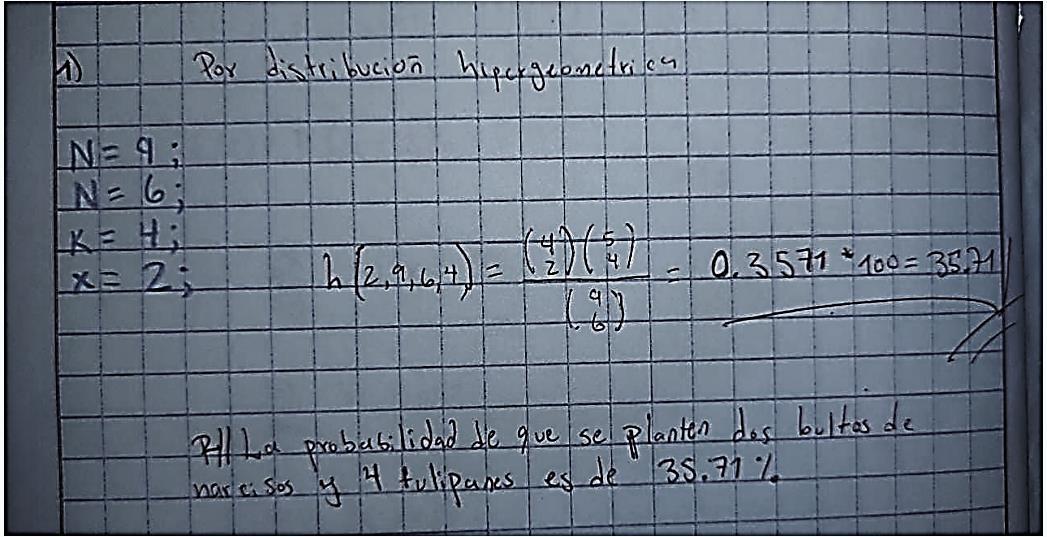 1) Por distribución hipergeometrica
N = 9;
N = 6;
K = 4;
x = 2;
h(2,9,6,4) = (4 2)(5 4) / (9 6) = 0.3571 * 100 = 35.71
R// La probabilidad de que se planten dos bultos de
narcisos y 4 tulipanes es de 35.71%